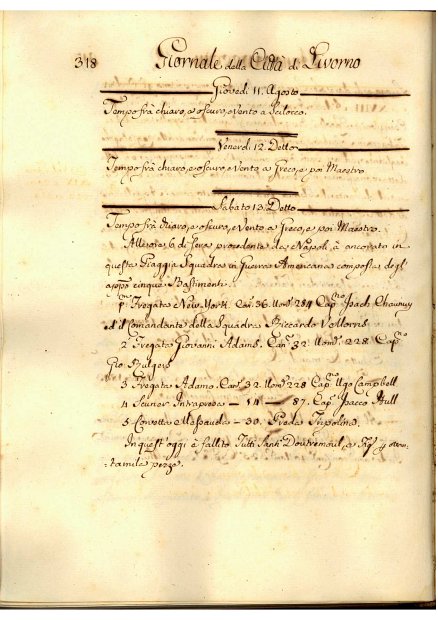 318 Giornale della Città di Livorno
Giovedì 11. Agosto
Tempo frà chiaro, e oscuro, e Vento a Scilocco.
Venerdì 12. Detto
Tempo frà chiaro, e oscuro, e Vento a Greco, e poi Maestro
Sabato 13. Detto
Tempo frà chiaro, e oscuro, e Vento a Greco, e poi Maestro.
Alle ore 6 di sera procedente da Napoli, è ancorato in
questa Piaggia Squadra in Guerra Americana composta degl'
appo cinque Bastimenti
p. Fregata New York. Can. 36. Uom. 284 Cap.no Isach Chauncy
ed il Comandante della Squadra Riccardo V. Morris
2 Fregata Giovanni Adams. Can. 32. Uom. 228. Cap.no
Gio.
3 Fregata Adamo. Can. 32. Uom. 228 Cap.no Ugo Campbell
4 Scunor Intrapresa – 14 – 87. Cap. Isacco Hull
5 Corvetta – 30. Preda Tripolina.
In quest'oggi è fallito Tutti Sant. a
tamila pezze.